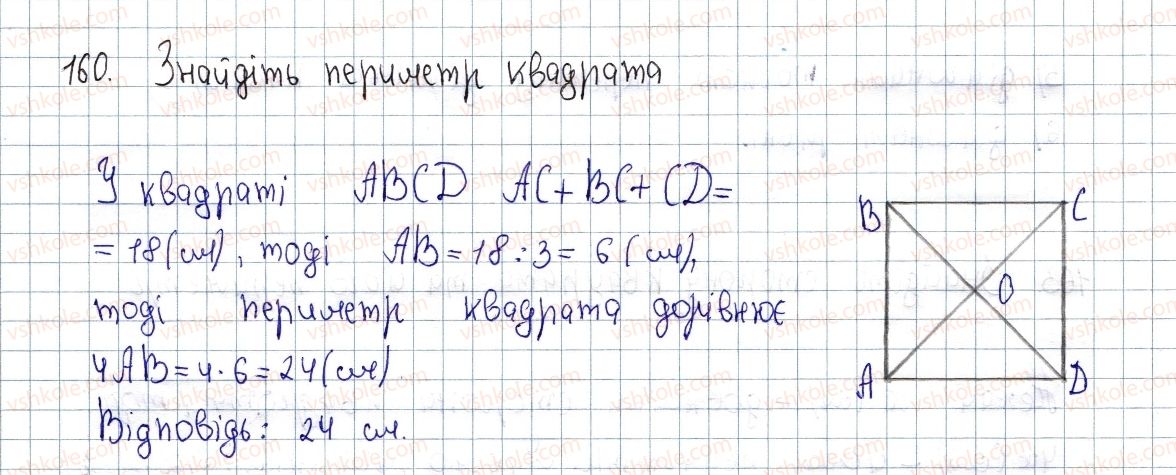 160. Знайдіть периметр квадрата
У квадраті ABCD AC+BC+CD=
=18(см), тоді AB=18:3=6(см),
тоді периметр квадрата дорівнює
4AB=4·6=24(см)
Відповідь: 24 см.
B C
O
A D
vshkole.com